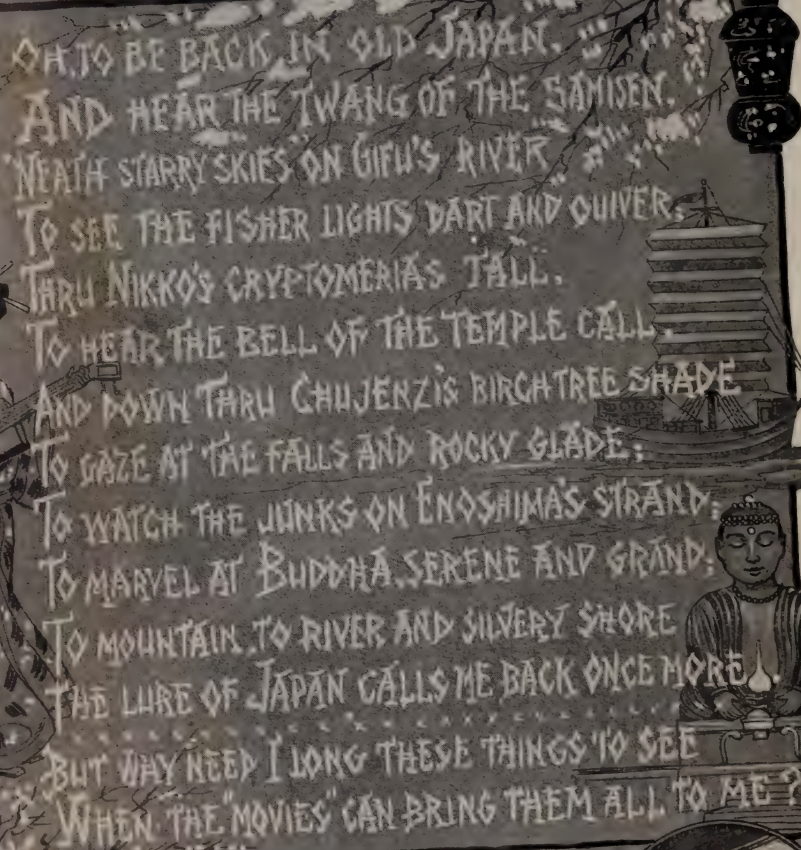 OH, TO BE BACK IN OLD JAPAN,
AND HEAR THE TWANG OF THE SAMISEN,
'NEATH STARRY SKIES ON GIFU'S RIVER
TO SEE THE FISHER LIGHTS DART AND QUIVER;
THRU NIKKO'S CRYPTOMERIAS TALL,
TO HEAR THE BELL OF THE TEMPLE CALL,
AND DOWN THRU CHUJENZI'S BIRCHTREE SHADE
TO GAZE AT THE FALLS AND ROCKY GLADE;
TO WATCH THE JUNKS ON ENOSHIMA'S STRAND;
TO MARVEL AT BUDDHA, SERENE AND GRAND;
TO MOUNTAIN, TO RIVER AND SILVERY SHORE
THE LURE OF JAPAN CALLS ME BACK ONCE MORE.
BUT WHY NEED I LONG THESE THINGS TO SEE
WHEN THE "MOVIES" CAN BRING THEM ALL TO ME?